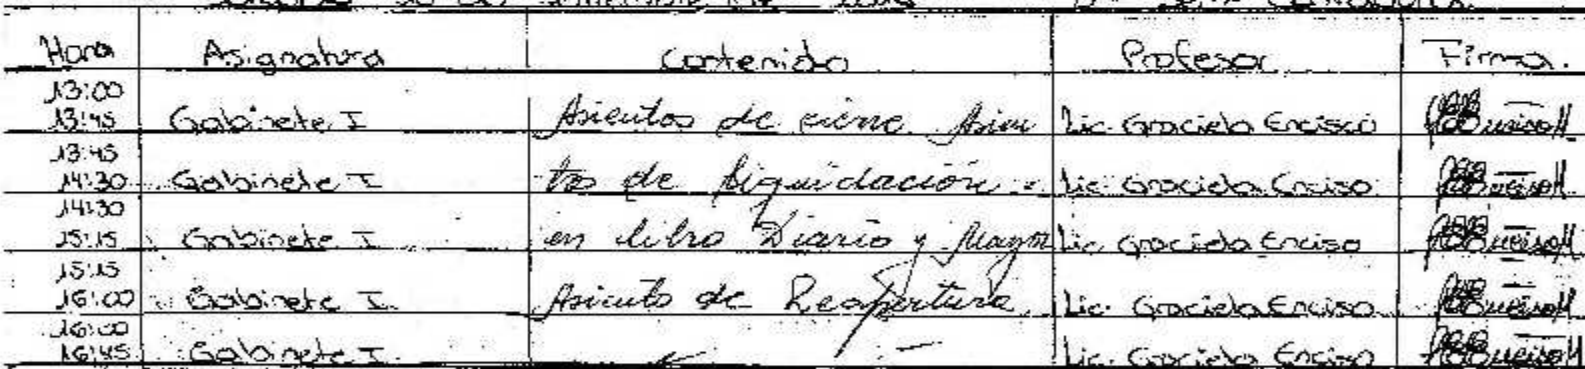 Hora Asignatura Contenido Profesor Firma.
13:00
13:45 Gabinete I Asientos de cierre Asien Lic. Graciela Enciso
13:45
14:30 Gabinete I tos de liquidación Lic. Graciela Enciso
14:30
15:15 Gabinete I en libro Diario y Mayor Lic. Graciela Enciso
15:15
16:00 Gabinete I Asiento de Reapertura Lic. Graciela Enciso
16:00
16:45 Gabinete I Lic. Graciela Enciso